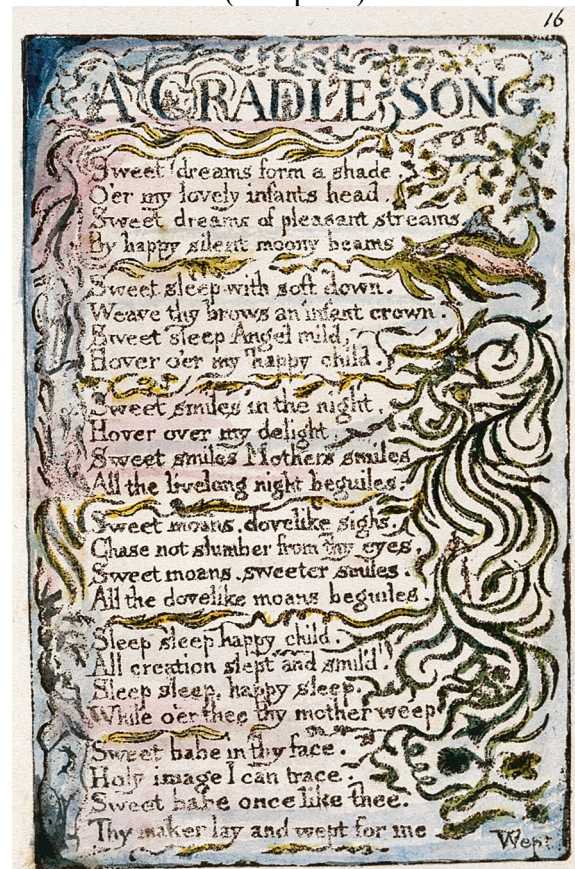 16
A CRADLE SONG
Sweet dreams form a shade
O'er my lovely infants head.
Sweet dreams of pleasant streams
By happy silent moony beams
Sweet sleep with soft down.
Weave thy brows an infant crown.
Sweet sleep Angel mild,
Hover o'er my happy child.
Sweet smiles in the night,
Hover over my delight.
Sweet smiles Mothers smiles
All the livelong night beguiles.
Sweet moans, dovelike sighs,
Chase not slumber from thy eyes,
Sweet moans, sweeter smiles.
All the dovelike moans beguiles.
Sleep sleep happy child.
All creation slept and smil'd.
Sleep sleep, happy sleep,
While o'er thee thy mother weep
Sweet babe in thy face.
Holy image I can trace.
Sweet babe once like thee.
Thy maker lay and wept for me
Wept